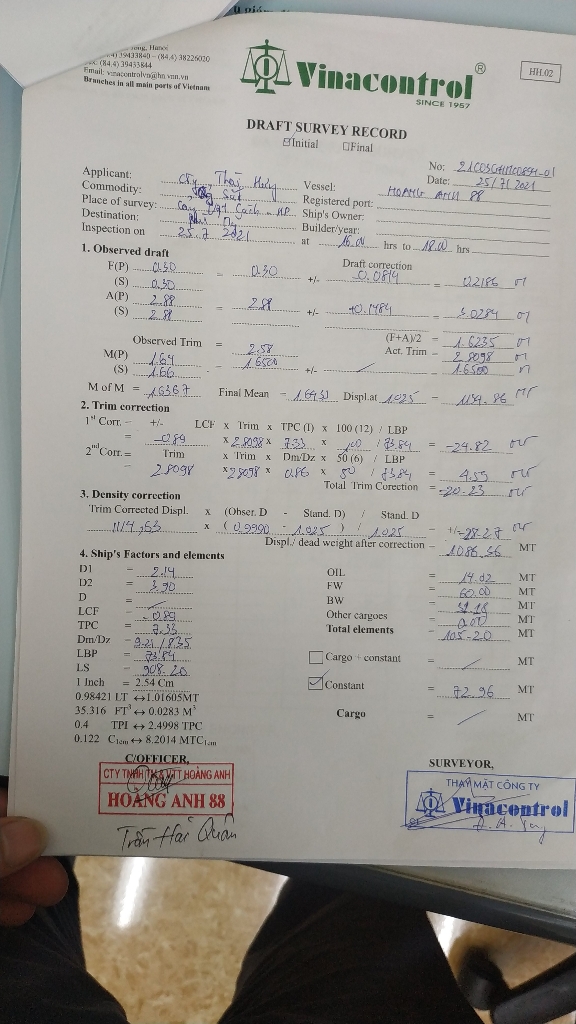 ong, Hanoi
39433840 – (84.4) 38226020
(84.4) 39433844
Email: vinacontrolvn@hn.vnn.vn
Branches in all main ports of Vietnam
Vinacontrol®
SINCE 1957
HH.02
DRAFT SURVEY RECORD
☑Initial ☐Final
No:
Date: 25/7/2021
Applicant: Cty Thái Hưng
Commodity:
Vessel: HOANG ANH 88
Place of survey:
Registered port:
Destination:
Ship's Owner:
Builder/year:
Inspection on 25.7.2021 at 16.00 hrs to 18.00 hrs
1. Observed draft
Draft correction
F(P) 0.30 = 0.30 +/- -0.0814 = 0.2186 m
(S) 0.30
A(P) 2.88 = 2.88 +/- +0.1484 = 3.0284 m
(S) 2.88
(F+A)/2 = 1.6235 m
Observed Trim = 2.58 Act. Trim - 2.8098 m
M(P) 1.64 - 1.6500 +/- / = 1.6500 m
(S) 1.66
M of M = 1.6367 Final Mean - 1.6433 Displ.at 1.025 - 1134.86 MT
2. Trim correction
1st Corr. - +/- LCF x Trim x TPC (I) x 100 (12) / LBP
= -0.89 x 2.8098 x 7.33 x 100 / 73.84 = -24.82 MT
2nd Corr. = Trim x Trim x Dm/Dz x 50 (6) / LBP
2.8098 x 2.8098 x 0.86 x 50 / 73.84 = 4.59 MT
Total Trim Corection = -20.23 MT
3. Density correction
Trim Corrected Displ. x (Obser. D - Stand. D) / Stand. D
1114,63 x ( 0.9990 - 1.025 ) / 1.025 - +/- -28.27 MT
Displ./ dead weight after correction - 1086.36 MT
4. Ship's Factors and elements
D1 = 2.14
D2 = 3.90
D = /
LCF - -0.89
TPC = 7.33
Dm/Dz - 9.21 / 8.35
LBP = 73.84
LS = 908.20
1 Inch = 2.54 Cm
0.98421 LT ↔ 1.01605MT
35.316 FT³ ↔ 0.0283 M³
0.4 TPI ↔ 2.4998 TPC
0.122 C1cm ↔ 8.2014 MTC1cm
OIL = 14.02 MT
FW = 60.00 MT
BW = 31.18 MT
Other cargoes = 0.00 MT
Total elements - 105.20 MT
☐ Cargo + constant = / MT
☑ Constant = 72.96 MT
Cargo = / MT
C/OFFICER,
CTY TNHH TM & VT HOÀNG ANH
HOÀNG ANH 88
Trần Hải Quân
SURVEYOR,
THAY MẶT CÔNG TY
Vinacontrol